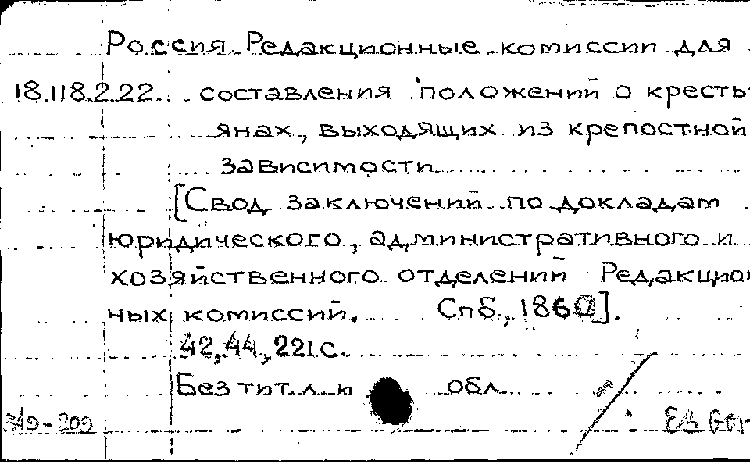 Россия. Редакционные комиссии для
18.118.2.22. составления положений о кресть-
янах, выходящих из крепостной
зависимости.
[Свод заключений по докладам
юридического, административного и
хозяйственного отделений Редакцион
ных комиссий. Спб., 1860].
42, 44, 221 с.
Без тит. л. и обл.
349-209